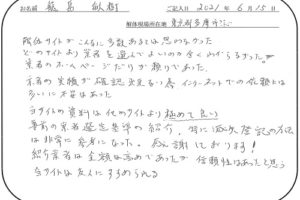 お名前 ご記入日 2021年6月15日
解体現場所在地 東京都多摩市
解体サイトがこんなに多数あるとは思わなかった
どのサイトより業者を選んでよいのか全くわからなかった
業者のホームページだけが頼りであった。
業者の実績が確認出来ない為 インターネットでの依頼は
多いに不安はあった
当サイトの資料は他のサイトより極めて良い
事前の業者選定基準の紹介、特に滅失登記の方法
は非常に参考になった。感謝しております!
紹介業者は金額は高めであったが信頼性はあったと思う
当サイトは友人にすすめられる